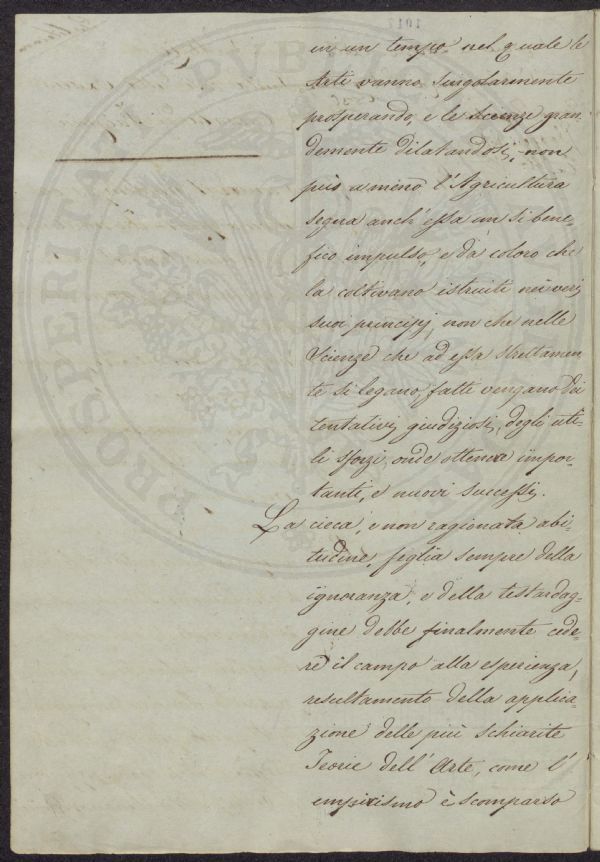 in un tempo nel quale le
Arti vanno singolarmente
prosperando, e le Scienze gran-
demente dilatandosi, non
può a meno l'Agricultura
segua anch'essa un sì bene-
fico impulso, e da coloro che
la coltivano istruiti nei veri
suoi principj, non che nelle
Scienze che ad essa strettamen-
te si legano, fatti vengano dei
tentativi giudiziosi, degli uti-
li sforzi onde ottenere impor-
tanti, e nuovi successi.
La cieca, e non ragionata abi-
tudine, figlia sempre della
ignoranza, e della testardag-
gine debbe finalmente cede-
re il campo alla esperienza,
resultamento della applica-
zione delle più schiarite
Teorie dell'Arte, come l'
empirismo è scomparso
PROSPERITATI PUBLIC